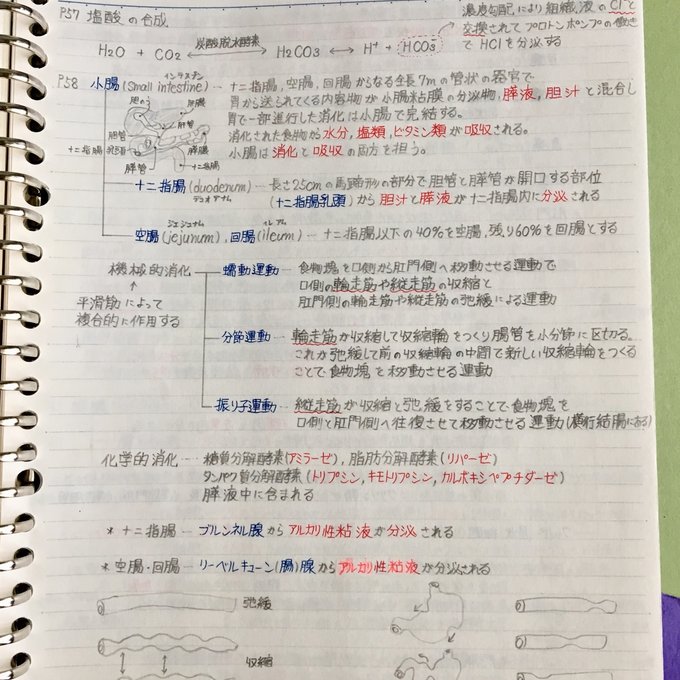 P57 塩酸の合成
濃度勾配により組織液のCl⁻と
交換されてプロトンポンプの働き
でHClを分泌する
炭酸脱水酵素
H₂O + CO₂ → H₂CO₃ ↔ H⁺ + HCO₃⁻
P58 小腸(Small intestine) … 十二指腸, 空腸, 回腸からなる全長7mの管状の器官で
インテスティン
胃から送られてくる内容物が小腸粘膜の分泌物, 膵液, 胆汁と混合し
胃で一部進行した消化は小腸で完結する。
消化された食物から水分, 塩類, ビタミン類が吸収される。
小腸は消化と吸収の両方を担う。
胆のう
肝臓
胆管
肝管
十二指腸乳頭
膵臓
膵管
十二指腸
十二指腸(duodenum) … 長さ25cmの馬蹄形の部分で胆管と膵管が開口する部位
デュオデナム
(十二指腸乳頭)から胆汁と膵液が十二指腸内に分泌される
ジェジュナム
イレアム
空腸(jejunum), 回腸(ileum) … 十二指腸以下の40%を空腸, 残り60%を回腸とする
機械的消化
↑
平滑筋によって
複合的に作用する
蠕動運動 … 食物塊を口側から肛門側へ移動させる運動で
口側の輪走筋や縦走筋の収縮と
肛門側の輪走筋や縦走筋の弛緩による運動
分節運動 … 輪走筋が収縮して収縮輪をつくり腸管を小分節に区切る。
これが弛緩して前の収縮輪の中間で新しい収縮輪をつくる
ことで食物塊を移動させる運動
振り子運動 … 縦走筋が収縮と弛緩をすることで食物塊を
口側と肛門側へ往復させて移動させる運動(横行結腸にある)
化学的消化 … 糖質分解酵素(アミラーゼ), 脂肪分解酵素(リパーゼ)
タンパク質分解酵素(トリプシン, キモトリプシン, カルボキシペプチダーゼ)
膵液中に含まれる
* 十二指腸 … ブルンネル腺からアルカリ性粘液が分泌される
* 空腸・回腸 … リーベルキューン(腸)腺からアルカリ性粘液が分泌される
弛緩
収縮